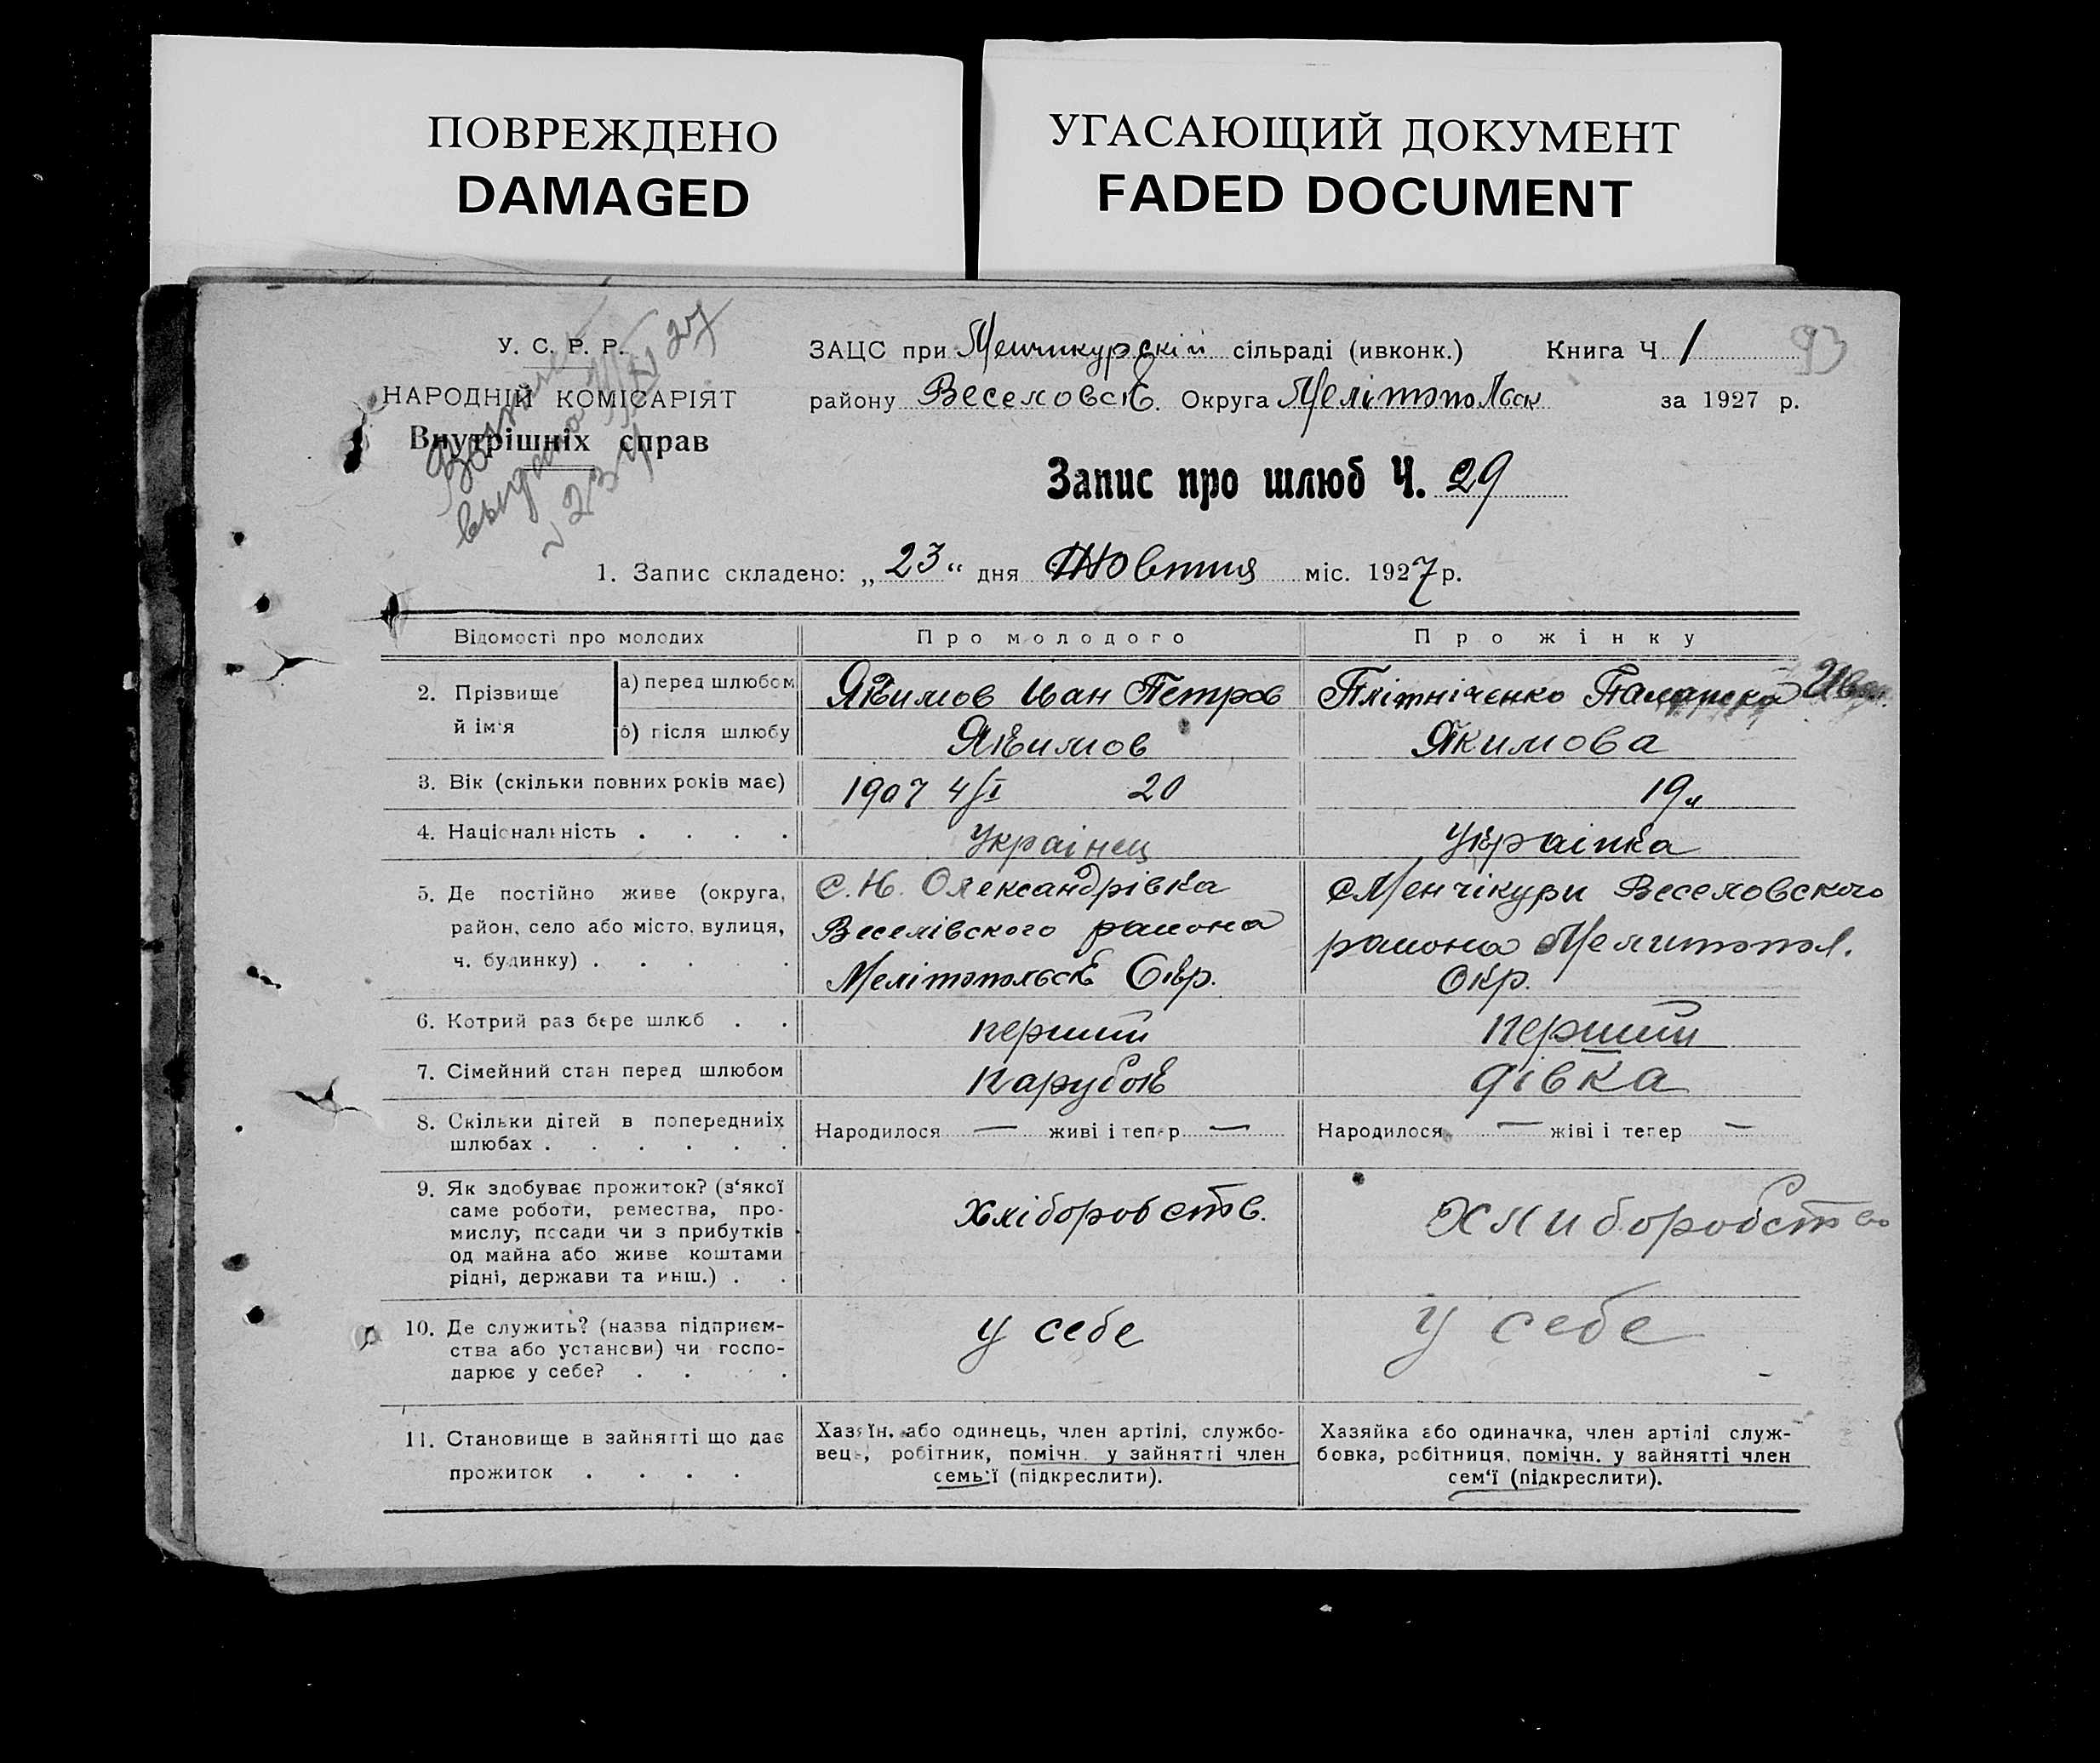 ПОВРЕЖДЕНО
DAMAGED
УГАСАЮЩИЙ ДОКУМЕНТ
FADED DOCUMENT
У. С. Р. Р.
НАРОДНІЙ КОМІСАРІЯТ
Внутрішніх справ
ЗАЦС при Менчикурскій сільраді (ивконк.) Книга Ч. 1 93
району Веселовск. Округа Мелітопольск за 1927 р.
Запис про шлюб Ч. 29
1. Запис складено: „23“ дня Жовтня міс. 1927 р.
Відомості про молодих Про молодого Про жінку
2. Прізвище й ім'я
а) перед шлюбом Якимов Иван Петров Плітніченко Иван.
б) після шлюбу Якимов Якимова
3. Вік (скільки повних років має) 1907 4/I 20 19 л
4. Національність . . . . Українец Українка
5. Де постійно живе (округа, район, село або місто, вулиця, ч. будинку) . . . . .
с. Н. Олександрівка
Веселівского района
Мелітопольск Окр.
с Менчікури Веселовского
района Мелитопол.
Окр.
6. Котрий раз бере шлюб . . перший перший
7. Сімейний стан перед шлюбом парубок дівка
8. Скільки дітей в попередниіх
шлюбах . . . . . .
Народилося — живі і тепер —
Народилося — жіві і тепер —
9. Як здобуває прожиток? (з'якої
саме роботи, ремества, про-
мислу, посади чи з прибутків
од майна або живе коштами
рідні, держави та инш.) . .
Хліборобств.
Хлиборобство
10. Де служить? (назва підприєм-
ства або установи) чи госпо-
дарює у себе? . . .
у себе
у себе
11. Становище в зайнятті що дає
прожиток . . . .
Хазяїн, або одинець, член артілі, службо-
вець, робітник, помічн. у зайнятті член
семь'ї (підкреслити).
Хазяйка або одиначка, член артілі служ-
бовка, робітниця, помічн. у зайнятті член
сем'ї (підкреслити).